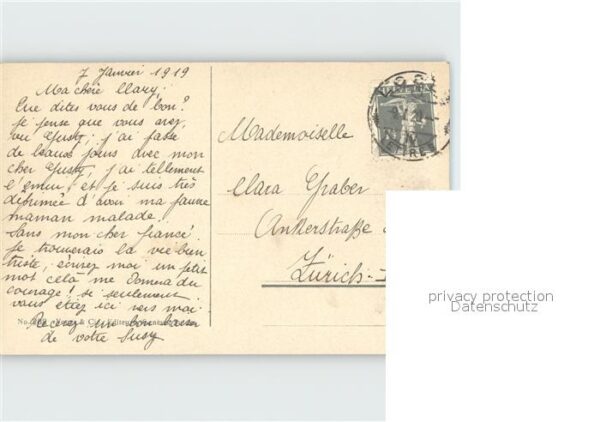 7 Janvier 1919
Ma chère Clary;
Que dites vous de bon?
Je pense que vous avez,
vu Gusty; j'ai passé
de beaux jours avec mon
cher Gusty, j'ai tellement
l'ennui et je suis très
déprimée d'avoir ma pauvre
maman malade.
Sans mon cher fiancé.
je trouverais la vie bien
triste, écrivez moi un petit
mot celà me donnera du
courage! si seulement
vous étiez ici vers moi.
Recevez un bon baiser
de votre Susy
No.
Mademoiselle
Clara Graber
Ankerstraße
Zürich-
privacy protection
Datenschutz